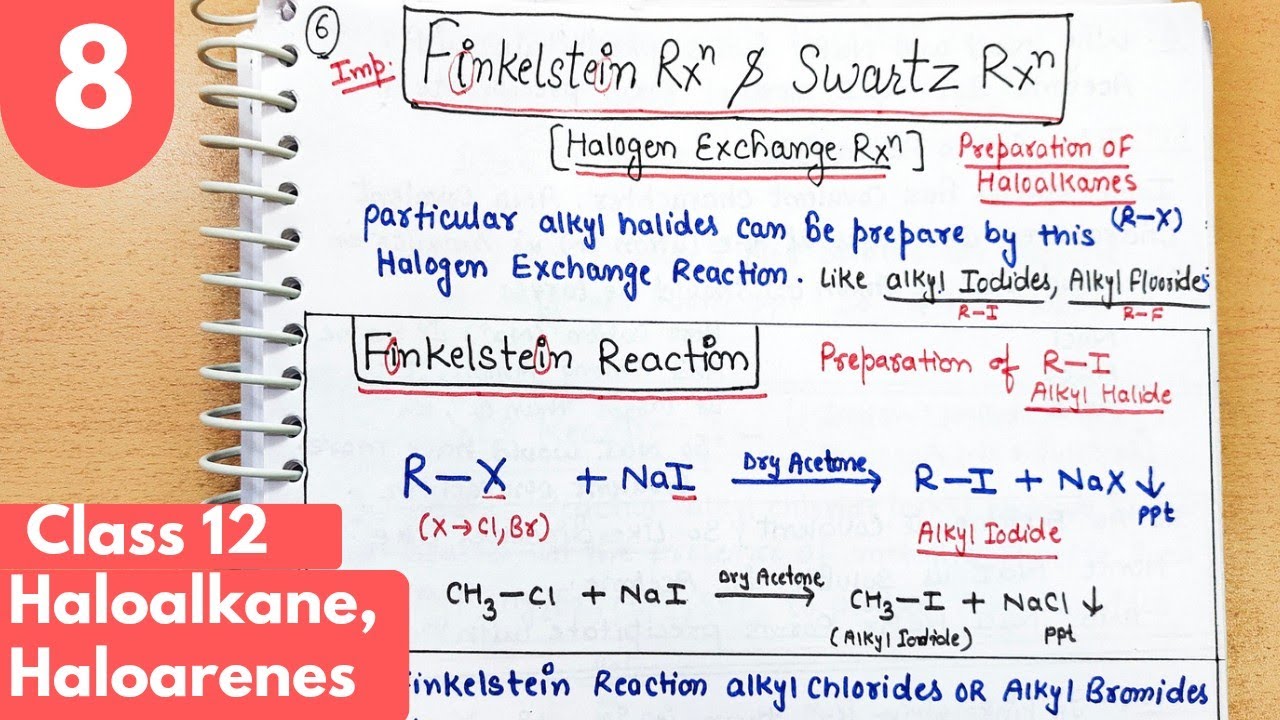 8
6
Imp.
Finkelstein Rxⁿ & Swartz Rxⁿ
[Halogen Exchange Rxⁿ]
Preparation of
Haloalkanes
(R-X)
particular alkyl halides can be prepare by this
Halogen Exchange Reaction. Like alkyl Iodides, Alkyl Fluorides
R-I
R-F
Finkelstein Reaction
Preparation of R-I
Alkyl Halide
R-X + NaI Dry Acetone → R-I + NaX ↓
ppt
(X→Cl, Br)
Alkyl Iodide
CH₃-Cl + NaI Dry Acetone → CH₃-I + NaCl ↓
(Alkyl Iodide)
ppt
inkelstein Reaction alkyl Chlorides OR Alkyl Bromides
Class 12
Haloalkane,
Haloarenes